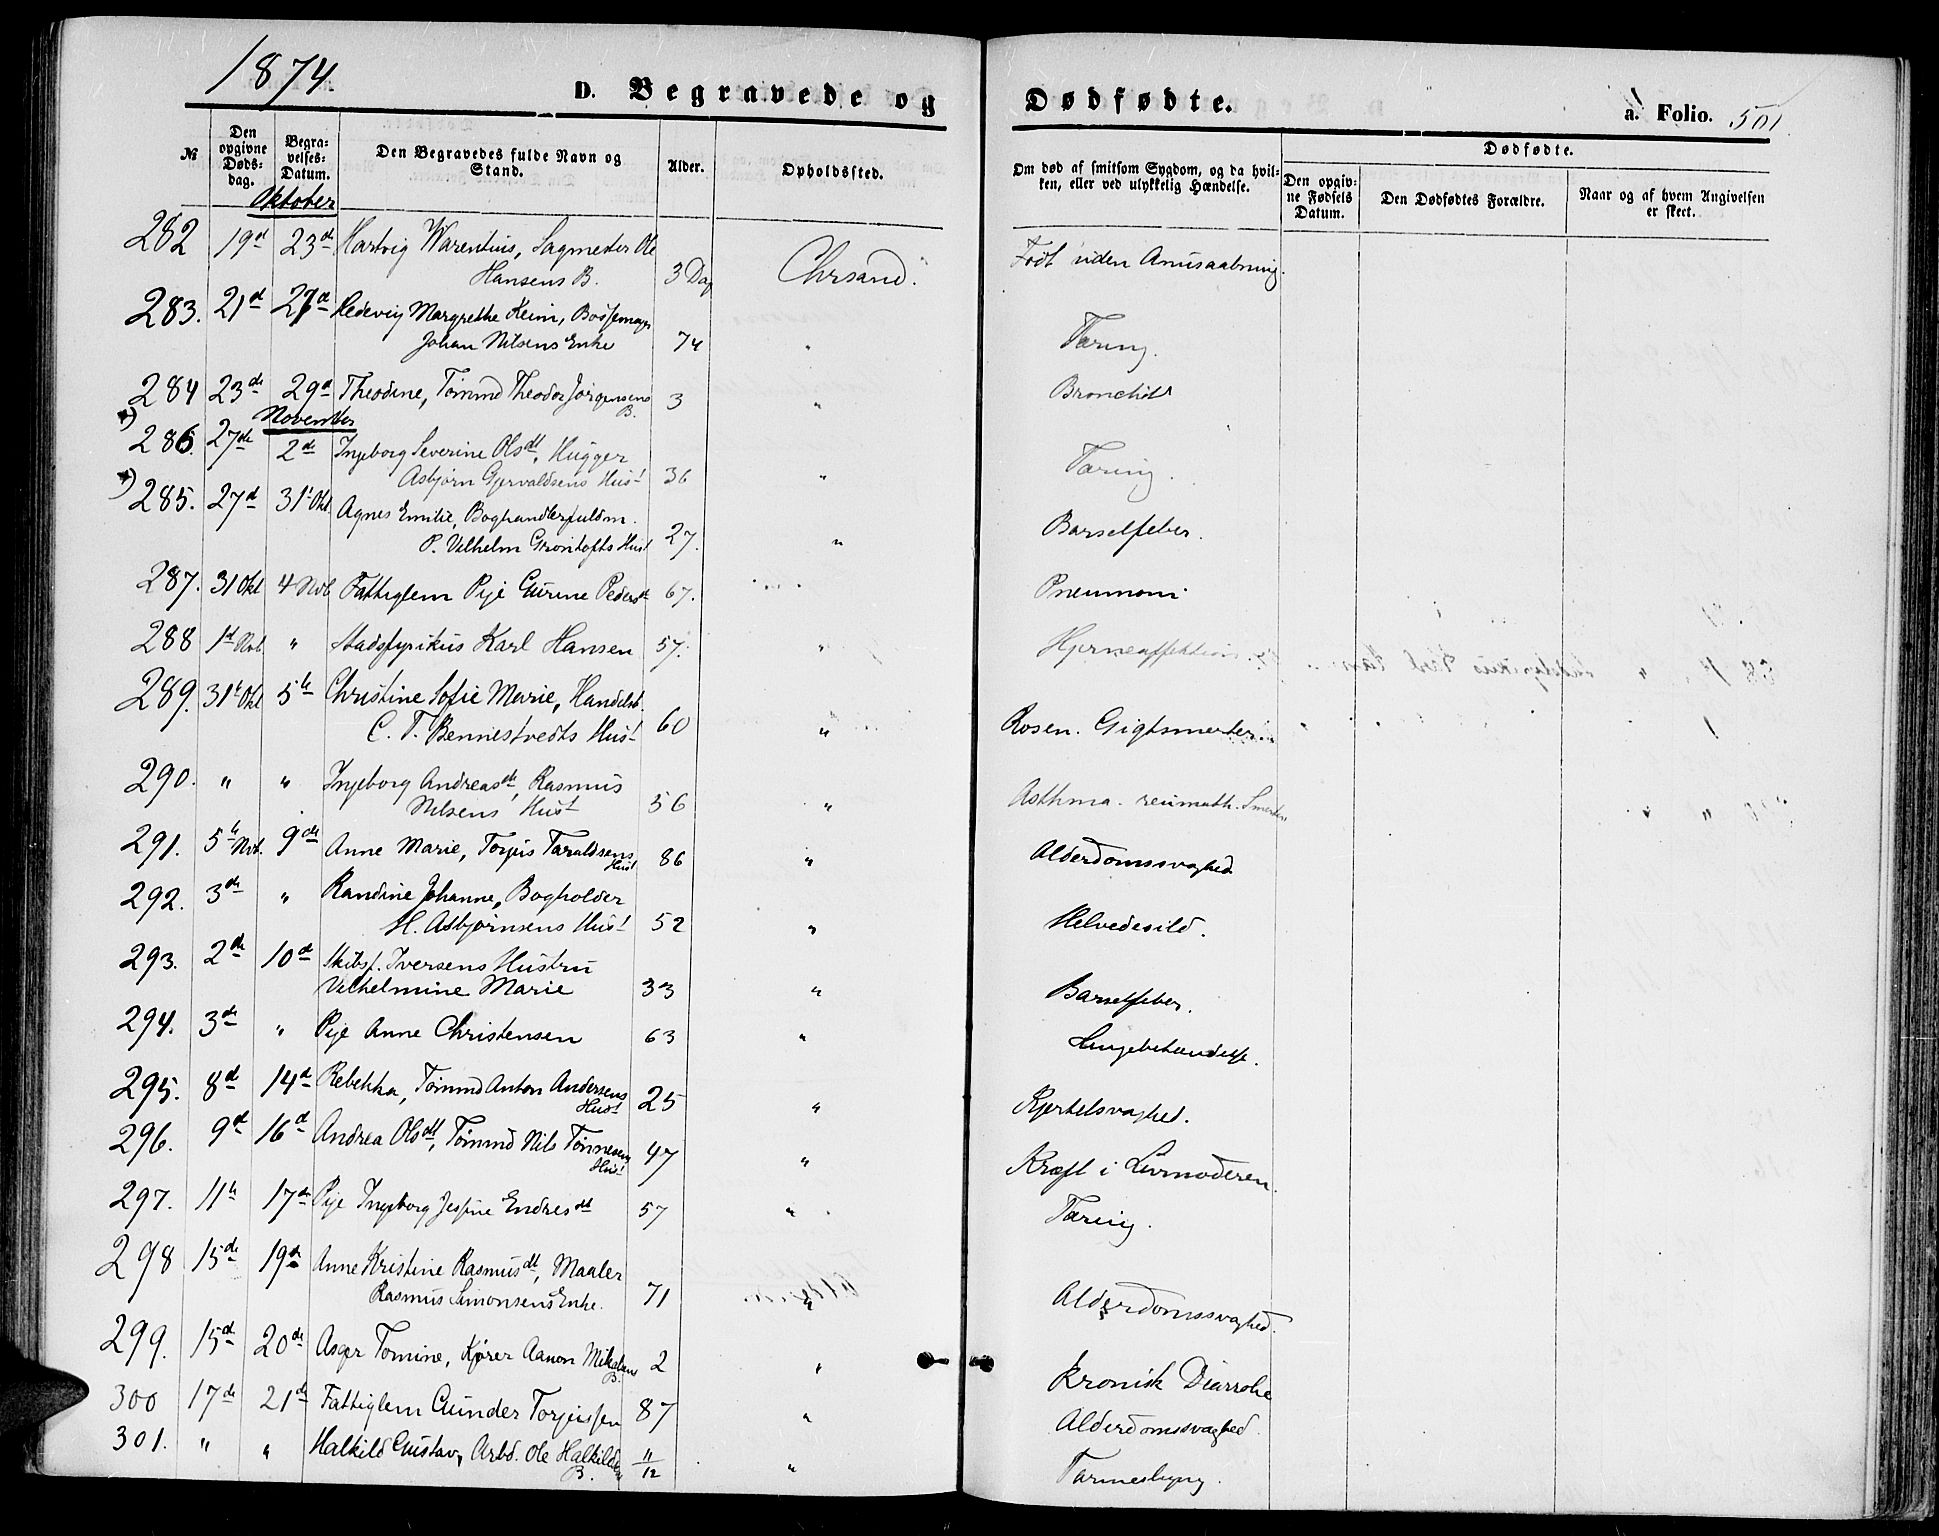 1874
D. Begravede og Dødfødte.
a. Folio. 501
№ Den opgivne Døds-dag. Begra-velses-Datum. Den Begravedes fulde Navn og Stand. Alder. Opholdssted. Om død af smitsom Sygdom, og da hvil-ken, eller ved ulykkelig Hændelse. Dødfødte. Den opgiv-ne Fødsels Datum. Den Dødfødtes Forældre. Naar og af hvem Angivelsen er skeet.
Oktober
282 19d 23de Hartvig Warentius, Sagmester Ole
Hansens B. 3 Dag Chrsand. Født uden Anusaabning.
283. 21d 27d Hedevig Margrethe Keim, Bøssemager
Johan Nilsens Enke 74 " Tæring.
284 23de 29d Theodine, Tømmd Theodor Jørgensens
B. 3 " Bronchit
November
286. 27de 2de Ingeborg Severine Olsdt, Hugger
Asbjørn Gjervaldsens Hust 36 " Tæring.
285. 27d 31t Okt Agnes Emilie, Boghandlerfuldm.
P. Vilhelm Grontofts Hust 27. " Barselfeber.
287. 31 Okt 4 Nvb Fattiglem Pige Gurine Pedersdt 67. " Pneumoni
288 1d Nvb. " Stadsfysikus Karl Hansen 57. " Hjerneaffektion
289. 31t Okt 5te Christine Sofie Marie, Handelsb.
C. T. Bennestvedts Hust 60 " Rosen. Gigtsmerter
290. " " Ingeborg Andreasdt, Rasmus
Nilsens Hust 56 " Asthma. reumath. Smerter
291. 5te Nvb. 9de Anne Marie, Torjus Taraldsens
Hust 86 " Alderdomssvaghed
292. 3de " Randine Johanne, Bogholder
H. Asbjørnsens Hust 52 " Helvedesild.
293. 2de 10de Skibsf. Iversens Hustru
Vilhelmine Marie 33 " Barselfeber.
294. 3de " Pige Anne Christensen 63 " Lungebetændelse.
295. 8d 14d Rebekka, Tømmd Anton Andersens
Hust 25 " Kjertelsvaghed.
296. 9d 16d Andrea Olsdt, Tømmd Nils Tønnesens
Hust 47 " Kræft i Livmoderen.
297. 11te 17de Pige Ingeborg Jessine Endresdt 57 " Tæring.
298 15de 19de Anne Kristine Rasmusdt, Maaler
Rasmus Simonsens Enke. 71 " Alderdomssvaghed.
299. 15d 20de Asger Tomine, Kjører Aanon Mikalsens
B. 2 " Kronisk Diarrohe
300 17de 21de Fattiglem Gunder Torjussen 87 " Alderdomssvaghed
301. " " Halkild Gustav, Arbd. Ole Halkilds
B. 11/12 " Tarmeslyng.